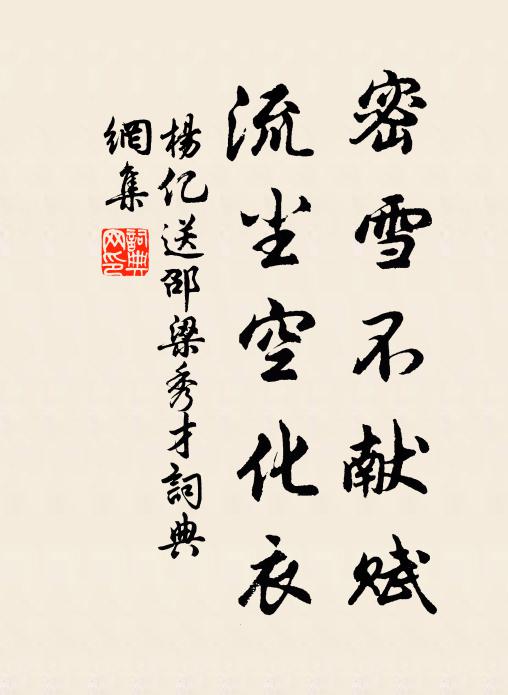 密雪不献赋
流尘空化衣
楊亿送邵梁秀才詞典
網集
詞典
网印